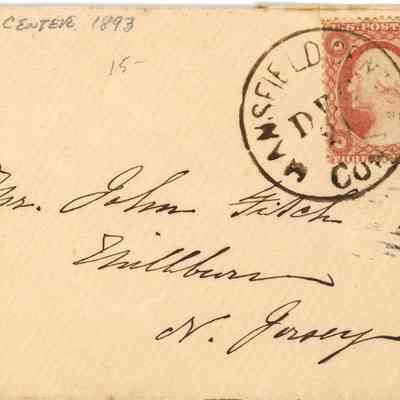 CENTER 1893
15-
U.S. POST
MANSFIELD
DE
CON
Mr. John Fitch
Millburn
N. Jersey